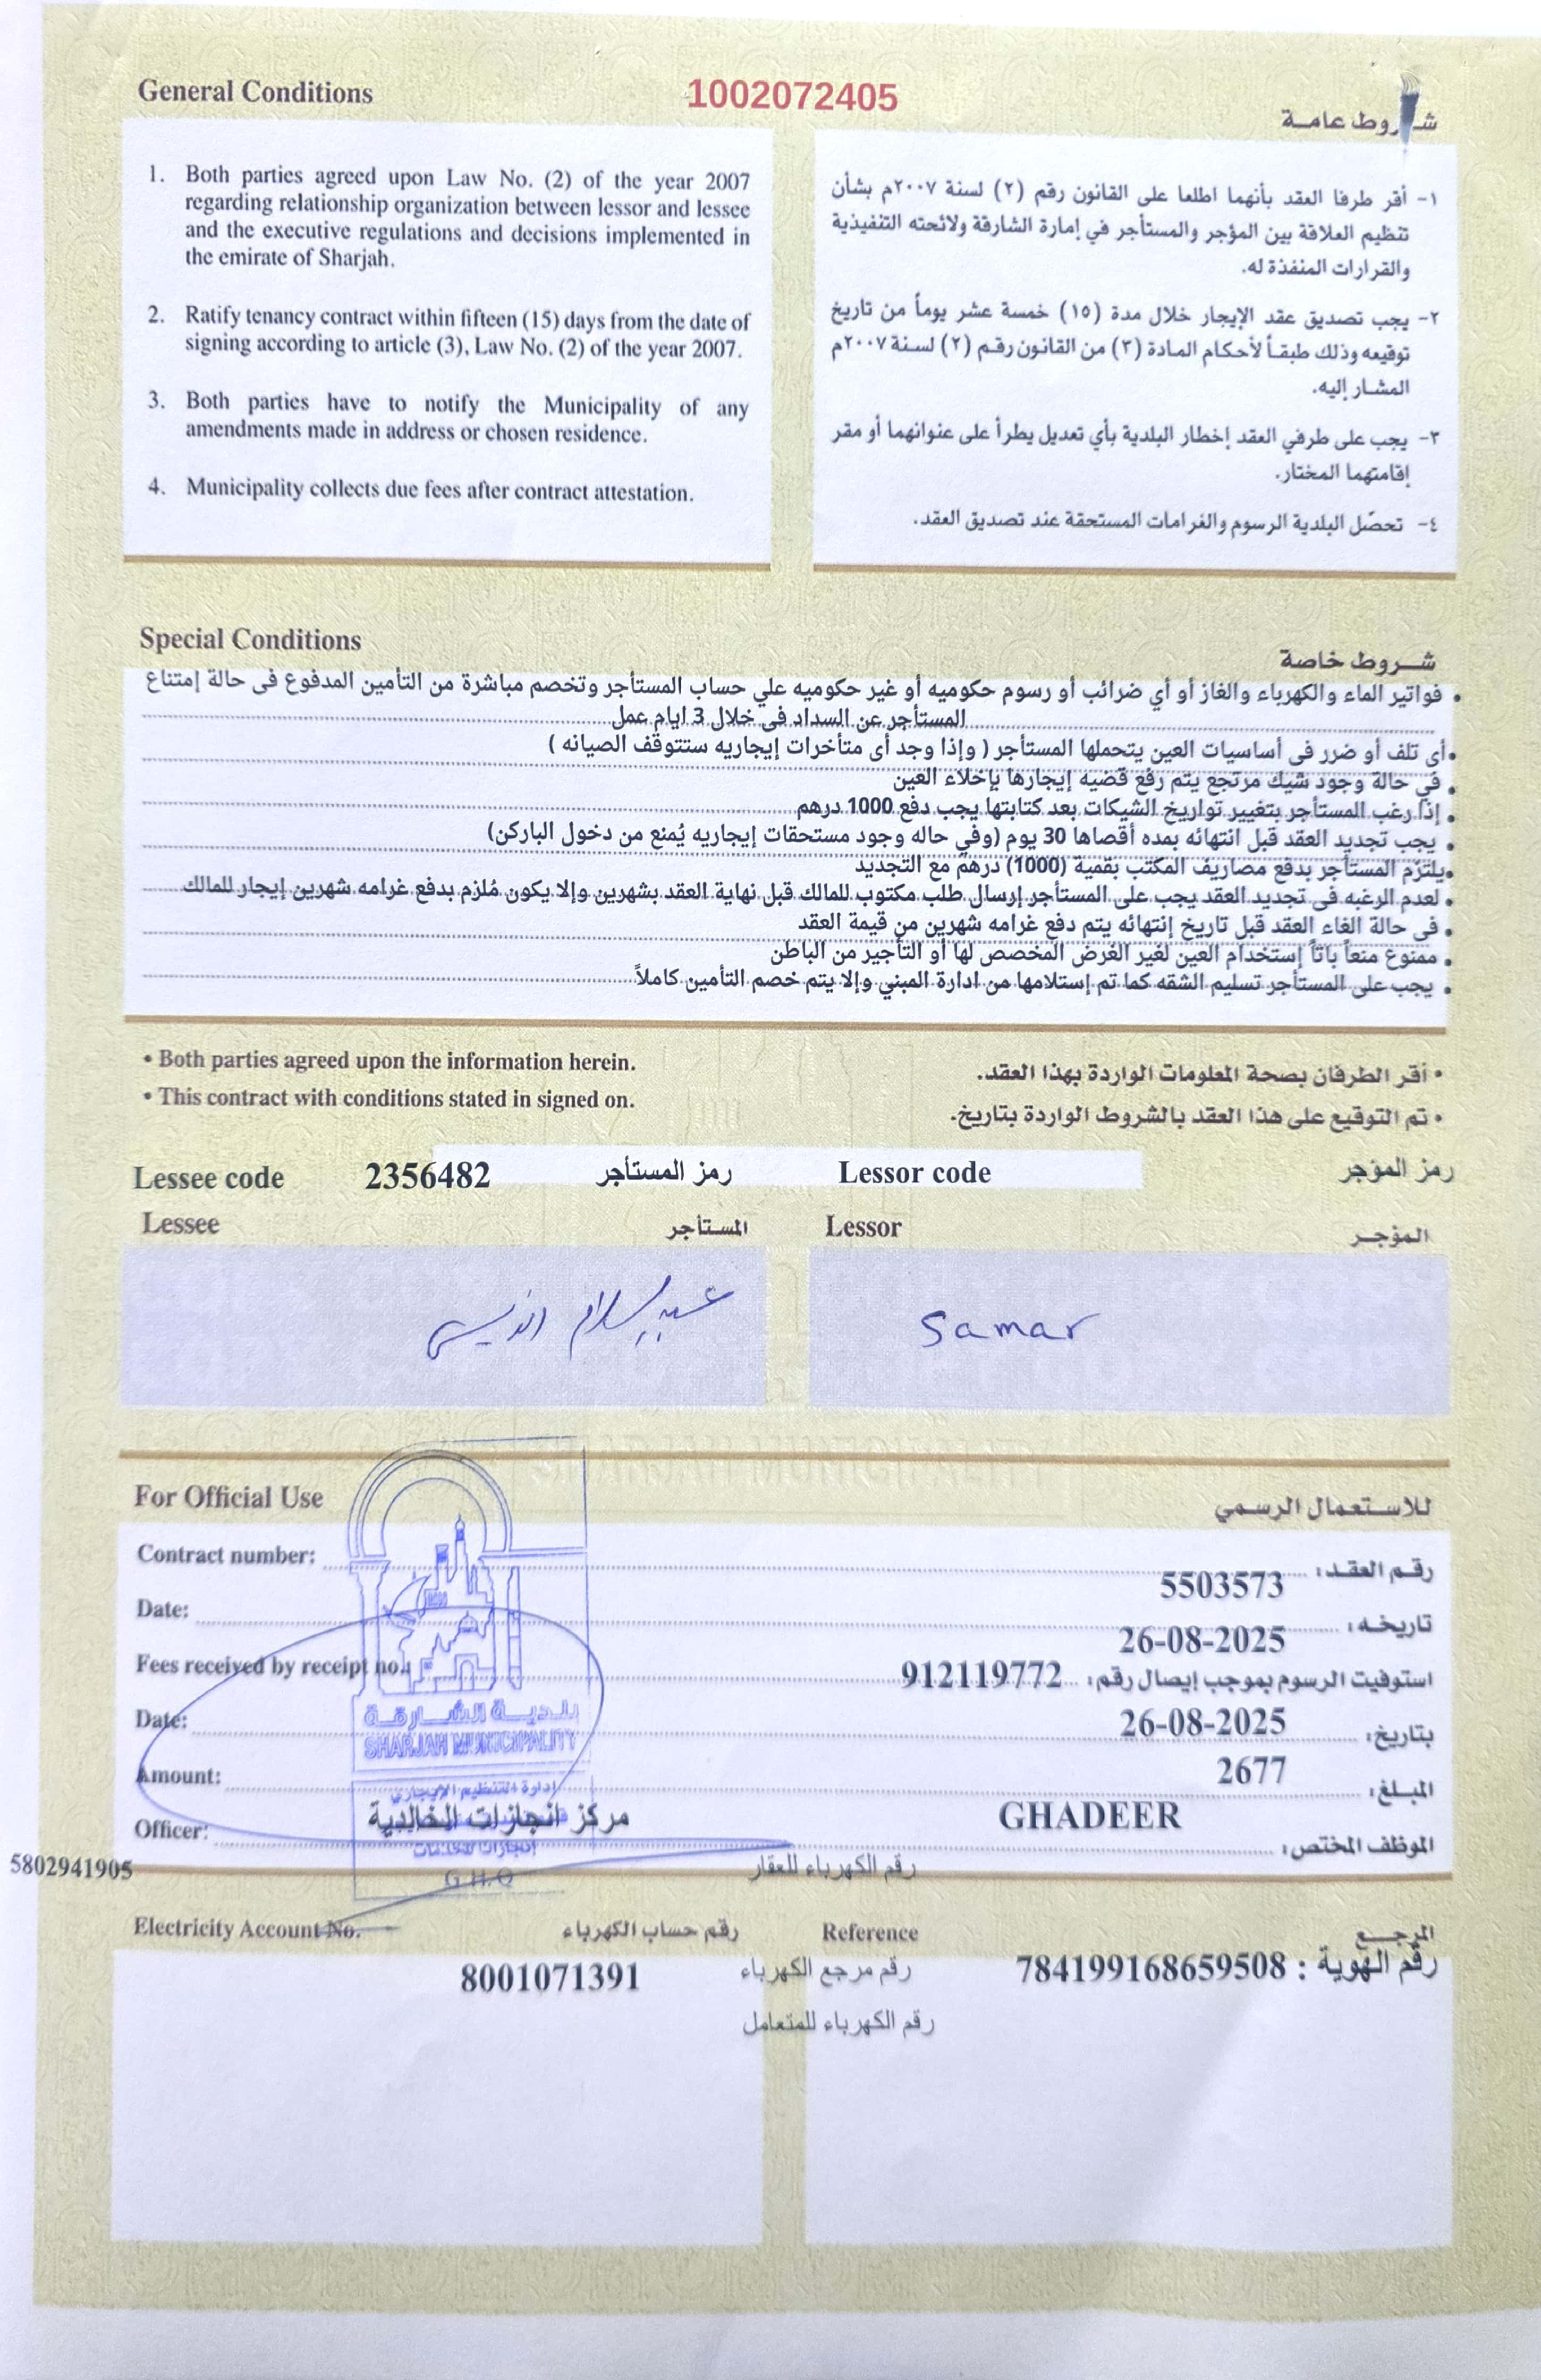 General Conditions
1002072405
شروط عامة
1. Both parties agreed upon Law No. (2) of the year 2007
regarding relationship organization between lessor and lessee
and the executive regulations and decisions implemented in
the emirate of Sharjah.
2. Ratify tenancy contract within fifteen (15) days from the date of
signing according to article (3), Law No. (2) of the year 2007.
3. Both parties have to notify the Municipality of any
amendments made in address or chosen residence.
4. Municipality collects due fees after contract attestation.
١- أقر طرفا العقد بأنهما اطلعا على القانون رقم (٢) لسنة ٢٠٠٧م بشأن
تنظيم العلاقة بين المؤجر والمستأجر في إمارة الشارقة ولائحته التنفيذية
والقرارات المنفذة له.
٢- يجب تصديق عقد الإيجار خلال مدة (١٥) خمسة عشر يوماً من تاريخ
توقيعه وذلك طبقاً لأحكام المادة (٣) من القانون رقم (٢) لسنة ٢٠٠٧م
المشار إليه.
٣- يجب على طرفي العقد إخطار البلدية بأي تعديل يطرأ على عنوانهما أو مقر
إقامتهما المختار.
٤- تحصّل البلدية الرسوم والغرامات المستحقة عند تصديق العقد.
Special Conditions
شروط خاصة
• فواتير الماء والكهرباء والغاز أو أي ضرائب أو رسوم حكوميه أو غير حكوميه علي حساب المستأجر وتخصم مباشرة من التأمين المدفوع فى حالة إمتناع
المستأجر عن السداد فى خلال 3 ايام عمل
• أى تلف أو ضرر فى أساسيات العين يتحملها المستأجر ( وإذا وجد أى متأخرات إيجاريه ستتوقف الصيانه )
• في حالة وجود شيك مرتجع يتم رفع قضيه إيجارها بإخلاء العين
• إذا رغب المستأجر بتغيير تواريخ الشيكات بعد كتابتها يجب دفع 1000 درهم
• يجب تجديد العقد قبل انتهائه بمده أقصاها 30 يوم (وفي حاله وجود مستحقات إيجاريه يُمنع من دخول الباركن)
• يلتزم المستأجر بدفع مصاريف المكتب بقمية (1000) درهم مع التجديد
• لعدم الرغبه فى تجديد العقد يجب على المستأجر إرسال طلب مكتوب للمالك قبل نهاية العقد بشهرين وإلا يكون مُلزم بدفع غرامه شهرين إيجار للمالك
• فى حالة الغاء العقد قبل تاريخ إنتهائه يتم دفع غرامه شهرين من قيمة العقد
• ممنوع منعاً باتاً إستخدام العين لغير الغرض المخصص لها أو التأجير من الباطن
• يجب على المستأجر تسليم الشقه كما تم إستلامها من ادارة المبني وإلا يتم خصم التأمين كاملاً
• Both parties agreed upon the information herein.
• This contract with conditions stated in signed on.
• أقر الطرفان بصحة المعلومات الواردة بهذا العقد.
• تم التوقيع على هذا العقد بالشروط الواردة بتاريخ.
Lessee code 2356482 رمز المستأجر Lessor code رمز المؤجر
Lessee المستأجر Lessor المؤجر
عبدالسلام
Samar
For Official Use
للاستعمال الرسمي
Contract number: 5503573 رقم العقد:
Date: 26-08-2025 تاريخه:
Fees received by receipt no.: 912119772 استوفيت الرسوم بموجب إيصال رقم:
Date: 26-08-2025 بتاريخ:
Amount: 2677 المبلغ:
Officer: GHADEER الموظف المختص:
بلدية الشارقة
SHARJAH MUNICIPALITY
إدارة التنظيم الإيجاري
مركز انجازات الخالدية
G.H.Q
5802941905 رقم الكهرباء للعقار
Electricity Account No. رقم حساب الكهرباء Reference المرجع
8001071391 رقم مرجع الكهرباء
رقم الهوية : 784199168659508
رقم الكهرباء للمتعامل